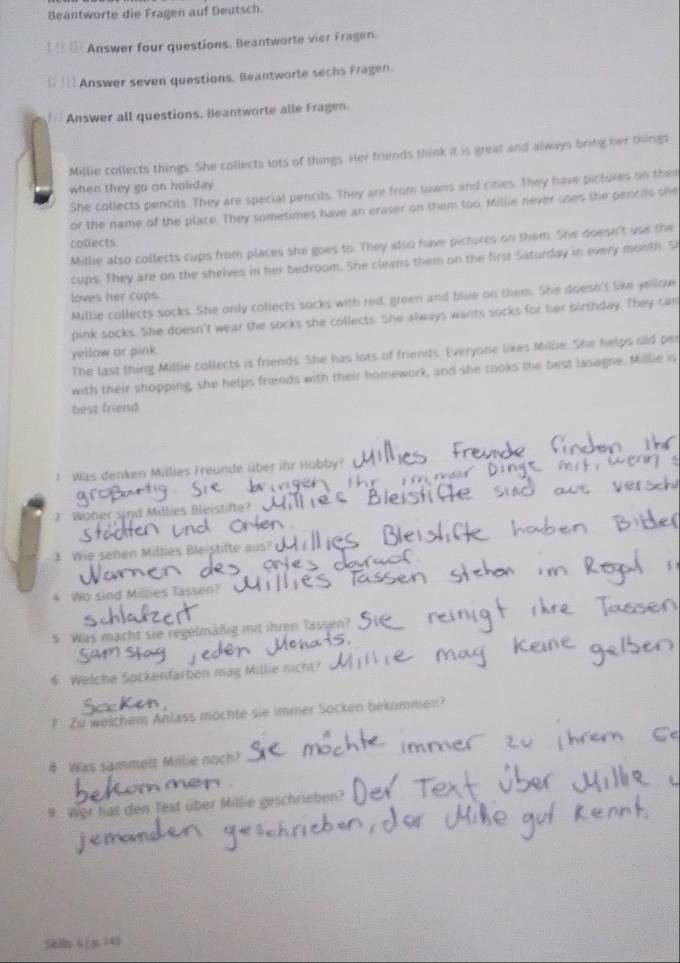 Beantworte die Fragen auf Deutsch.
Answer four questions. Beantworte vier Fragen.
Answer seven questions. Beantworte sechs Fragen.
Answer all questions. Beantworte alle Fragen.
Millie collects things. She collects lots of things. Her friends think it is great and always bring her things
when they go on holiday.
She collects pencils. They are special pencils. They are from towns and cities. They have pictures on them
or the name of the place. They sometimes have an eraser on them too. Millie never uses the pencils she
collects.
Millie also collects cups from places she goes to. They also have pictures on them. She doesn't use the
cups. They are on the shelves in her bedroom. She cleans them on the first Saturday in every month. S
loves her cups.
Millie collects socks. She only collects socks with red, green and blue on them. She doesn't like yellow
pink socks. She doesn't wear the socks she collects. She always wants socks for her birthday. They can
yellow or pink.
The last thing Millie collects is friends. She has lots of friends. Everyone likes Millie. She helps old pe
with their shopping, she helps friends with their homework, and she cooks the best lasagne. Millie is
best friend.
1 Was denken Millies Freunde über ihr Hobby? Millies Freunde finden ihr
großartig. Sie bringen ihr immer Dinge mit, wenn s
2 Woher sind Millies Bleistifte? Millies Bleistifte sind aus versch
städten und orten.
3 Wie sehen Millies Bleistifte aus? Millies Bleistifte haben Bilder
Namen des ortes darauf.
4 Wo sind Millies Tassen? Millies Tassen stehen im Regal i
schlafzert
5 Was macht sie regelmäßig mit ihren Tassen? Sie reinigt ihre Tassen
samstag jeden Monats.
6 Welche Sockenfarben mag Millie nicht? Millie mag keine gelben
Socken.
7 Zu welchem Anlass möchte sie immer Socken bekommen?
8 Was sammelt Millie noch? Sie möchte immer zu ihrem Ge
bekommen.
9 Wer hat den Text über Millie geschrieben? Der Text über Millie
jemanden geschrieben, der Millie gut kennt.
Skills 6 / p. 145